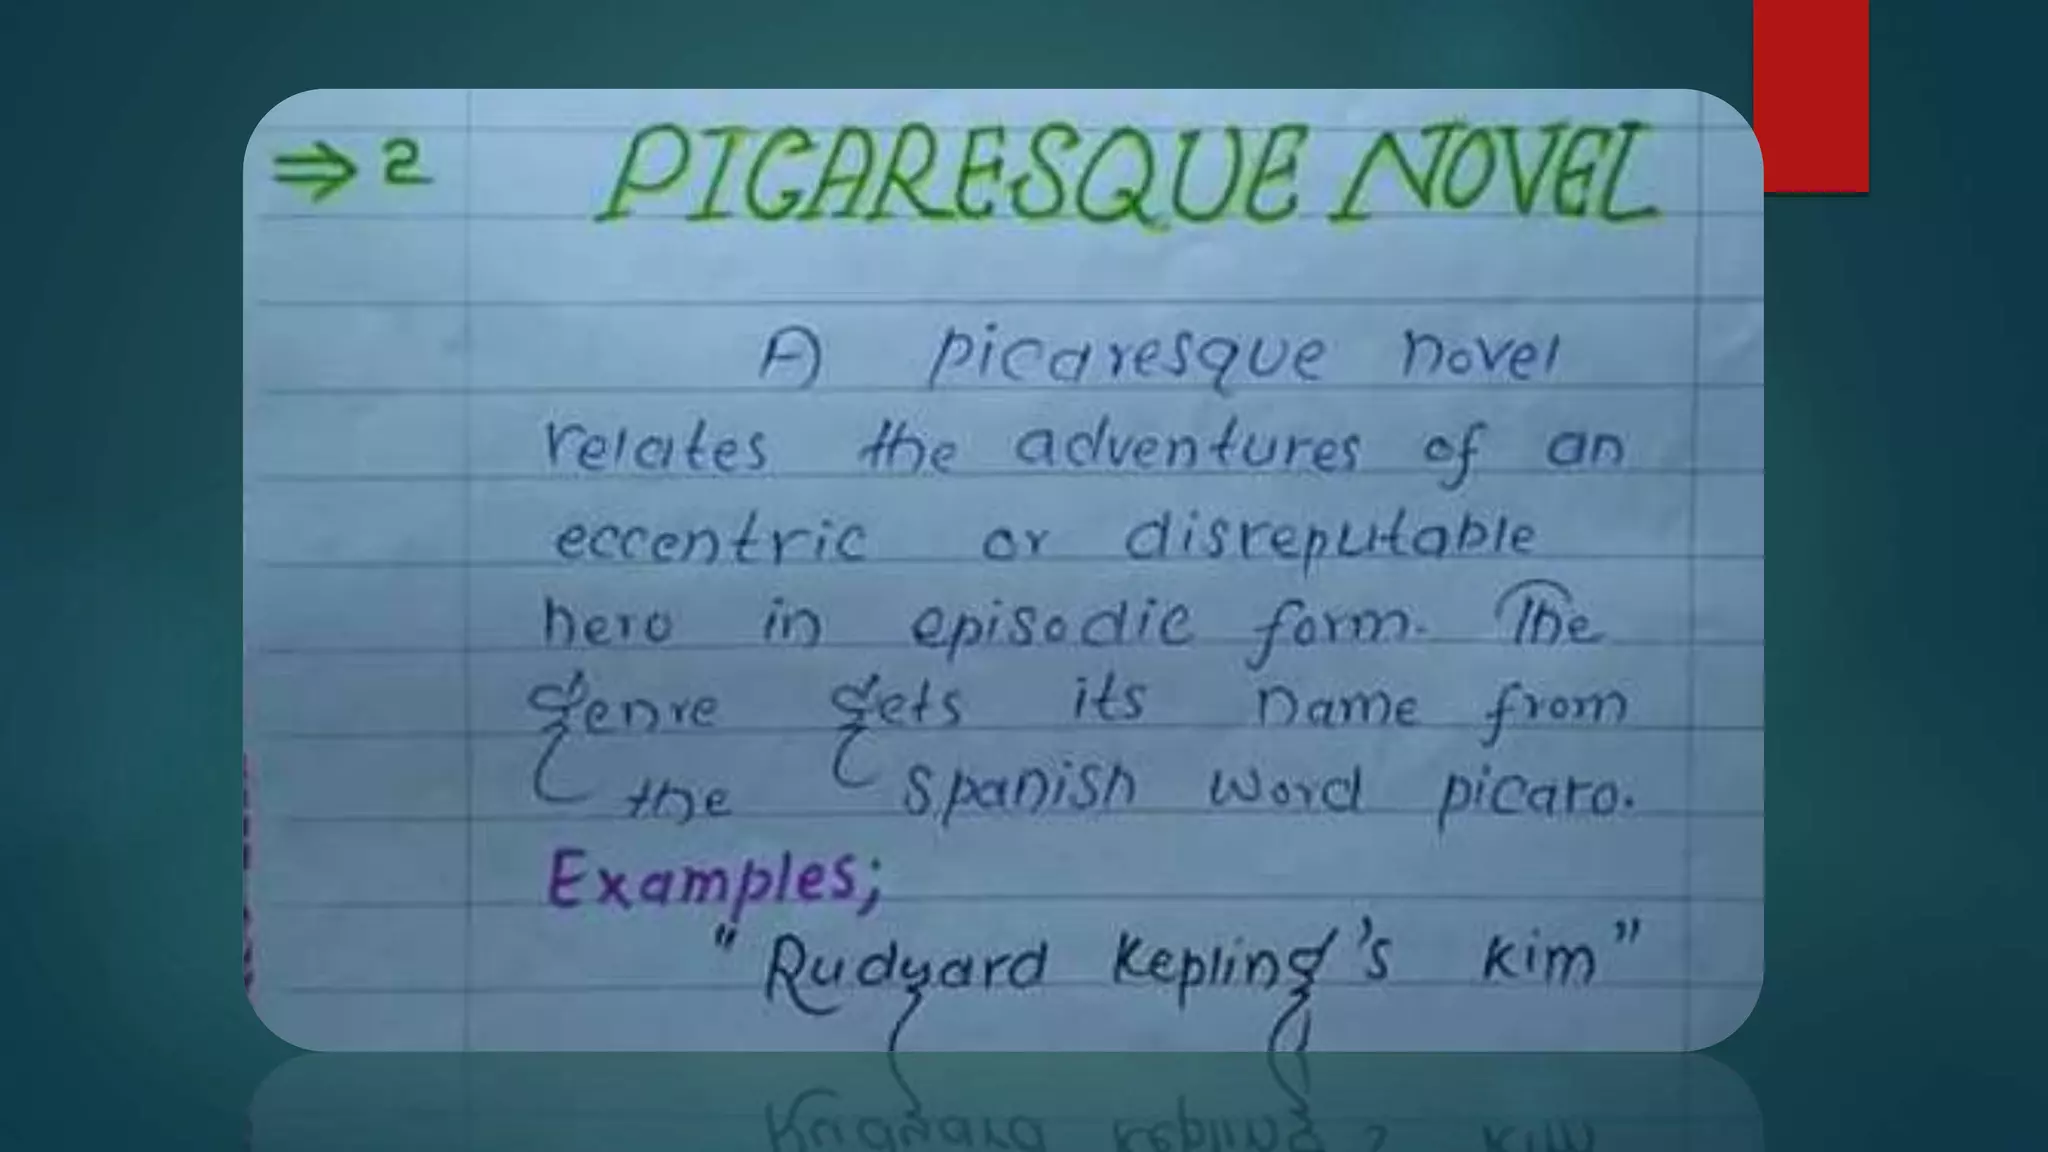 ⇒ 2 PICARESQUE NOVEL
A picaresque novel
relates the adventures of an
eccentric or disreputable
hero in episodic form. The
genre gets its name from
the spanish word picaro.
Examples;
"Rudyard Kepling's Kim"